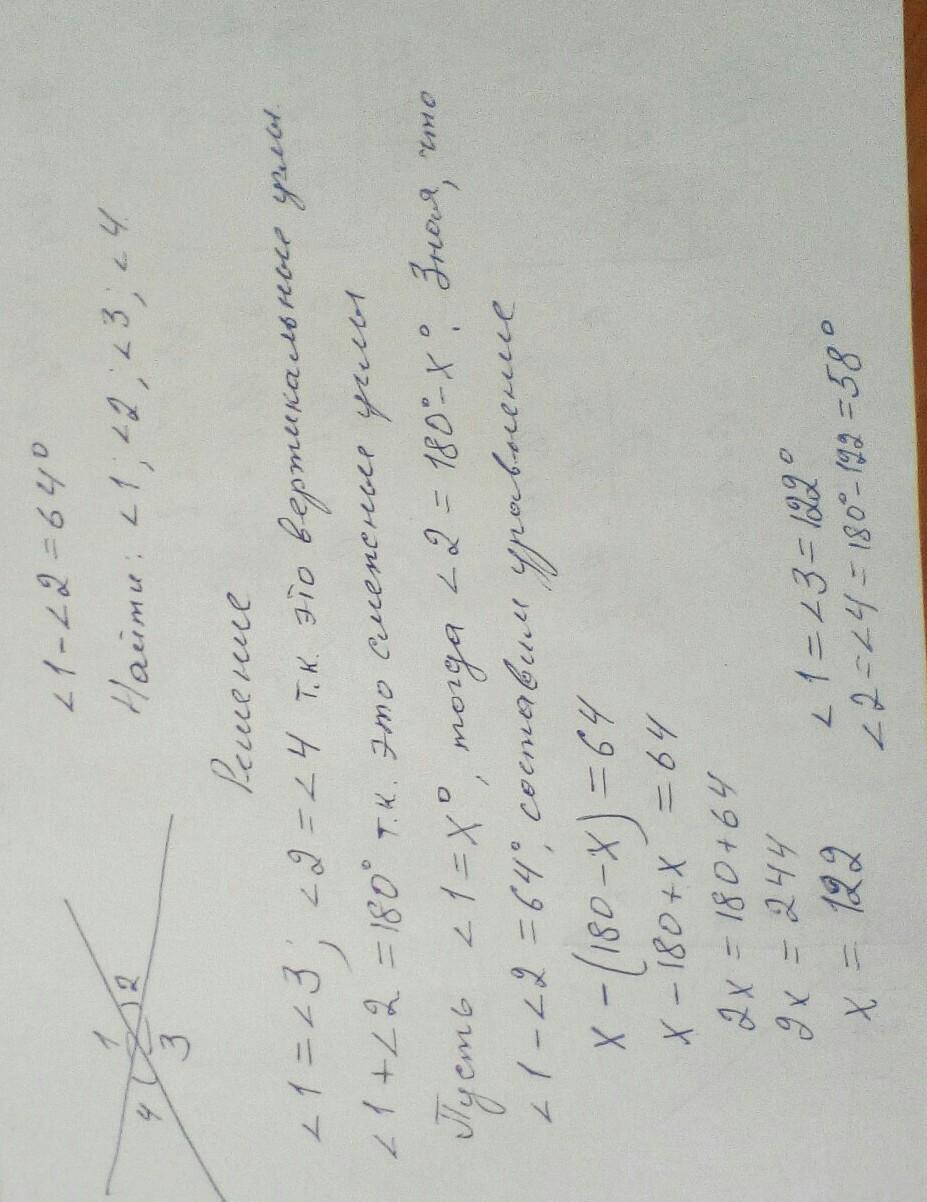 1
2
3
4
∠1-∠2=64°
Найти: ∠1; ∠2; ∠3; ∠4
Решение
∠1=∠3; ∠2=∠4 т.к. это вертикальные углы
∠1+∠2=180° т.к. это смежные углы
Пусть ∠1=x°, тогда ∠2=180°-x°. Зная, что
∠1-∠2=64°, составим уравнение
x-(180-x)=64
x-180+x=64
2x=180+64
2x=244
x=122
∠1=∠3=122°
∠2=∠4=180°-122=58°